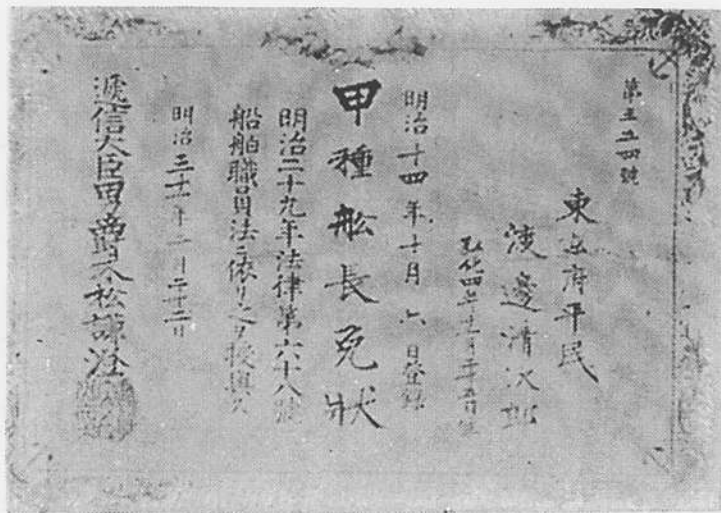 第五五四號
東京府平民
渡邊清次郎
弘化四年十一月二十五日生
明治十四年十月六日登録
甲種舩長免狀
明治二十九年法律第六十八號
船舶職員法ニ依リ之ヲ授與ス
明治三十一年一月二十二日
遞信大臣男爵末松謙澄